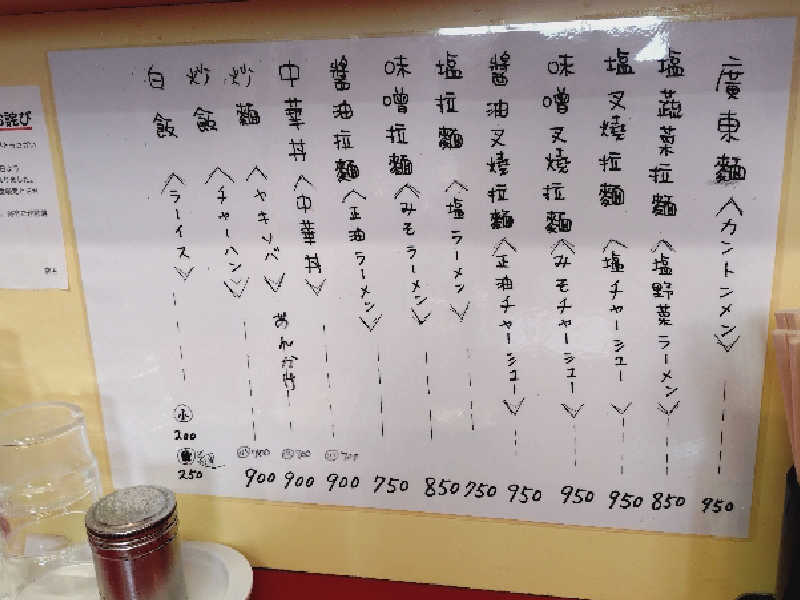 廣東麵〈カントンメン〉 950
塩蔬菜拉麵〈塩野菜ラーメン〉 850
塩叉燒拉麵〈塩チャーシュー〉 950
味噌叉燒拉麵〈みそチャーシュー〉 950
醬油叉燒拉麵〈正油チャーシュー〉 950
塩拉麵〈塩ラーメン〉 750
味噌拉麵〈みそラーメン〉 850
醬油拉麵〈正油ラーメン〉 750
中華丼〈中華丼〉 小700 900
炒麵〈ヤキソバ〉あんかけ 小700 900
炒飯〈チャーハン〉 小700 900
白飯〈ラーイス〉 小200 250
お詫び